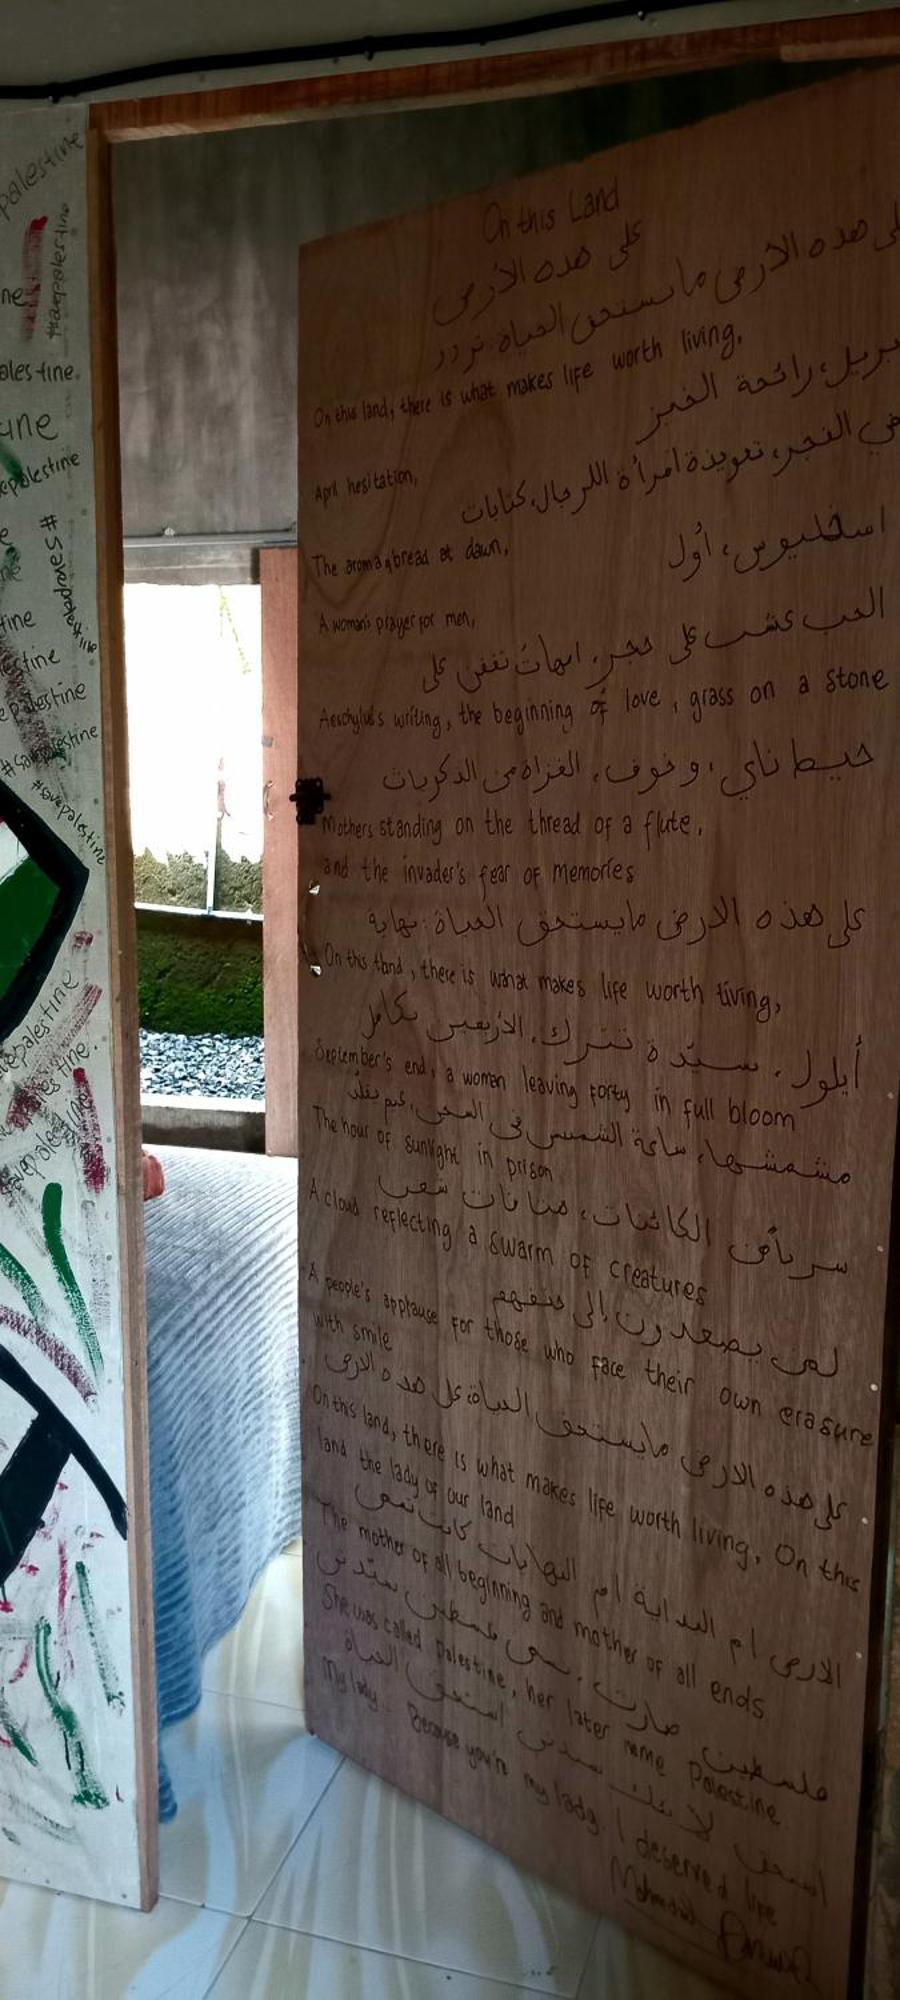 palestine
#savepalestine
ne
ales tine.
une
epalestine
#savepalestine
tine
lestine
e palestine
#Savepalestine
#savepalestine
On this Land
على هذه الأرض
على هذه الأرض ما يستحق الحياة: تردد
On this land, there is what makes life worth living.
بريل، رائحة الخبز
April hesitation,
في الفجر، تعويذة امرأة للرجال، كتابات
The aroma of bread at dawn,
اسخليوس، أول
A woman's prayer for men,
الحب عشب على حجر، امهات تقفن على
Aeschylus's writing, the beginning of love, grass on a stone
خيط ناي، وخوف، الغزاة من الذكريات
Mothers standing on the thread of a flute,
and the invader's fear of memories
على هذه الارض مايستحق الحياة: نهاية
On this land, there is what makes life worth living,
أيلول، سيّدة تترك، الأربعين بكامل
September's end, a woman leaving forty in full bloom
مشمشها، ساعة الشمس في السجن، غيم يقلد
The hour of sunlight in prison
سربا من الكائنات، هتافات شعب
A cloud reflecting a swarm of creatures
لمن يصعدون إلى حتفهم
A people's applause for those who face their own erasure
with smile
على هذه الارض مايستحق الحياة، على هذه الارض
On this land, there is what makes life worth living, On this
land the lady of our land
الارض ام البداية ام النهايات كانت تسمى
The mother of all beginning and mother of all ends
فلسطين صارت تسمى فلسطين سيدتي
She was called palestine, her later name Palestine
استحق لانك سيدتي استحق الحياة
My lady.. Because you're my lady. I deserved life
Mahmoud Darwish